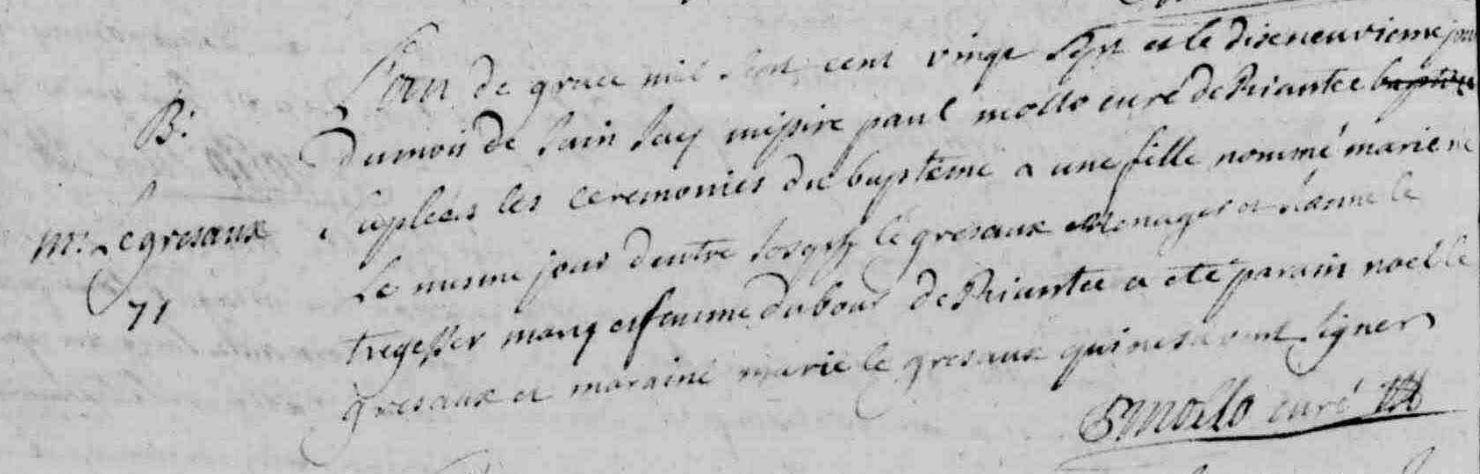 L'an de grace mil sept cent vingt sept et le diseneuvieme jour
B:
Dumois de Juin Jay missire paul mollo curé de Riantec
suplées les ceremonies du bapteme a une fille nommé marie né
mie Legresaux
le mesme jour dentre Joseph le gresaux menager et Janne le
71
tregesser mary et femme du bour de Riantec a eté parain noel le
gresaux et maraine marie le gresaux qui ne savent signer
P mollo curé